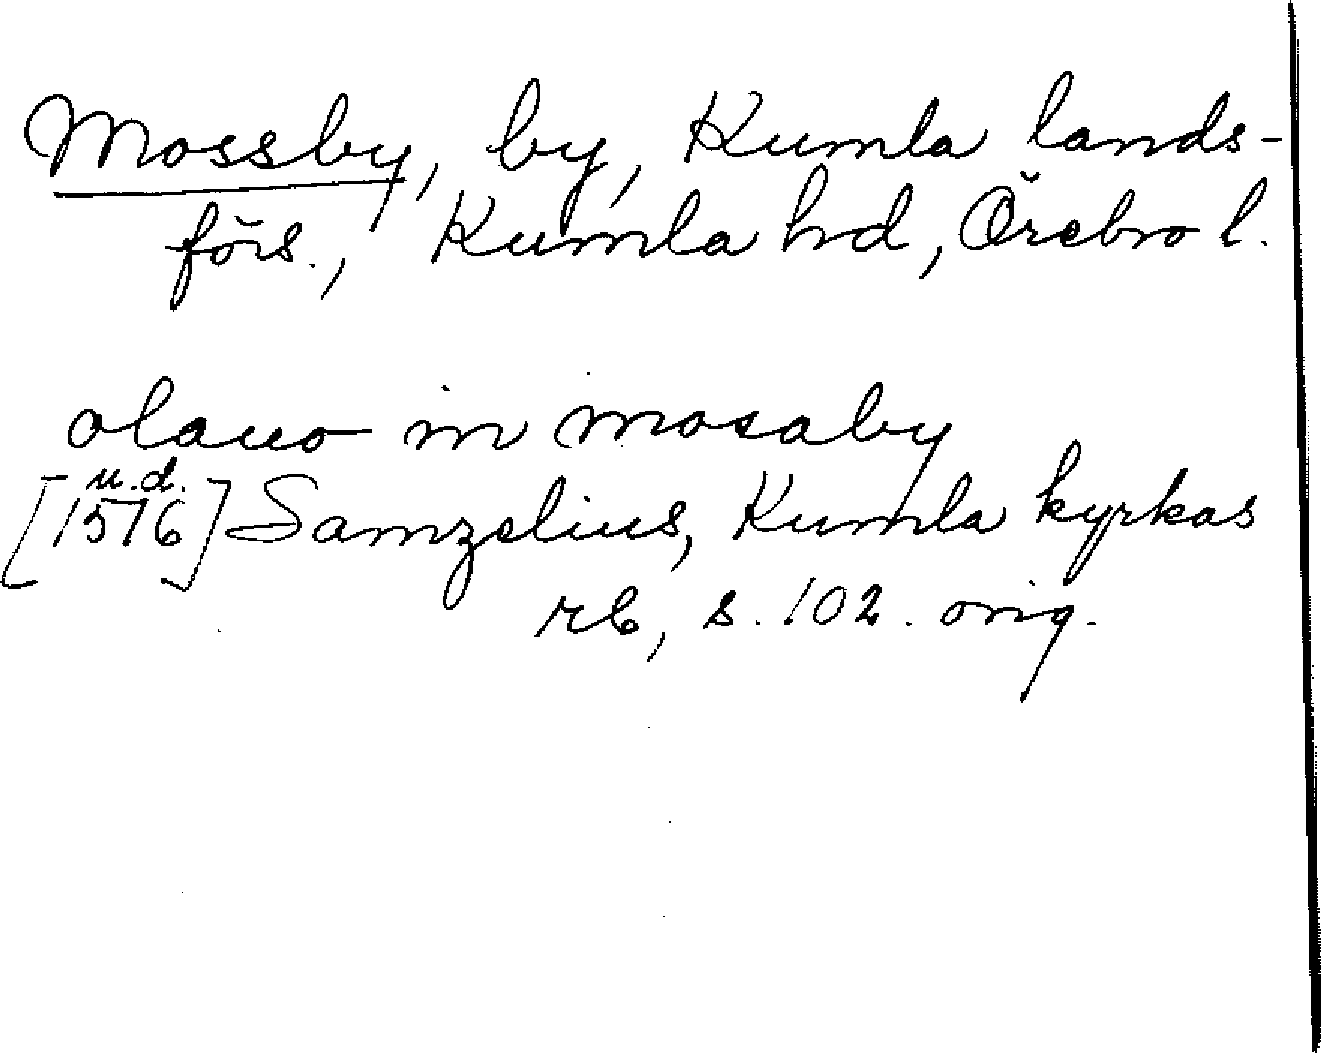 Mossby, by, Kumla lands-
förs., Kumla hd, Örebro l.
olauo in mosaby
u.d.
[1576] Samzelius, Kumla kyrkas
rb, s. 102. orig.